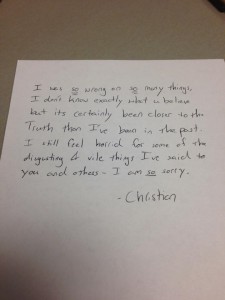 I was so wrong on so many things.
I don't know exactly what I believe
but its certainly been closer to the
Truth than I've been in the past.
I still feel horrid for some of the
disgusting & vile things I've said to
you and others - I am so sorry.
- Christian